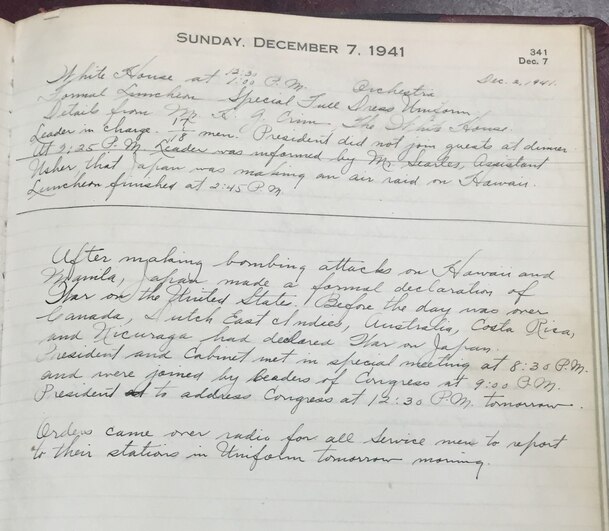 SUNDAY, DECEMBER 7, 1941
341
Dec. 7
12:30
White House at 1:00 P.M. Orchestra Dec. 2, 1941.
Formal Luncheon Special Full Dress Uniform
Details from Mr. H. G. Crim The White House.
17
Leader in charge. 18 men. President did not join guests at dinner.
At 2:25 P.M. Leader was informed by Mr. Searles, Assistant
Usher that Japan was making an air raid on Hawaii.
Luncheon finished at 2:45 P.M.
After making bombing attacks on Hawaii and
Manila, Japan made a formal declaration of
War on the United States. Before the day was over
Canada, Dutch East Indies, Australia, Costa Rica,
and Nicuraga had declared War on Japan.
President and Cabinet met in special meeting at 8:30 P.M.
and were joined by leaders of Congress at 9:00 P.M.
President to address Congress at 12:30 P.M. tomorrow.
Orders came over radio for all Service men to report
to their stations in Uniform tomorrow morning.